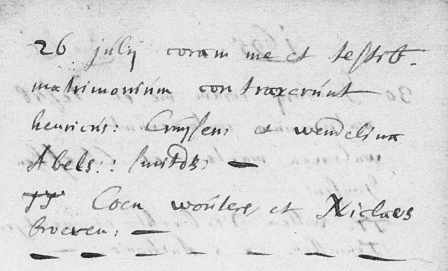 26 julij coram me et testib.
matrimonium contraxerunt
henricus: Cruysen et wendelina
Abels::
TT Coen wouters et Niclaes
broeren: